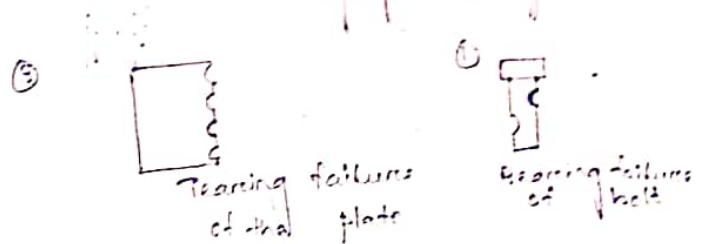 ③
Tearing failure
of the plate
Bearing failure
of bolt